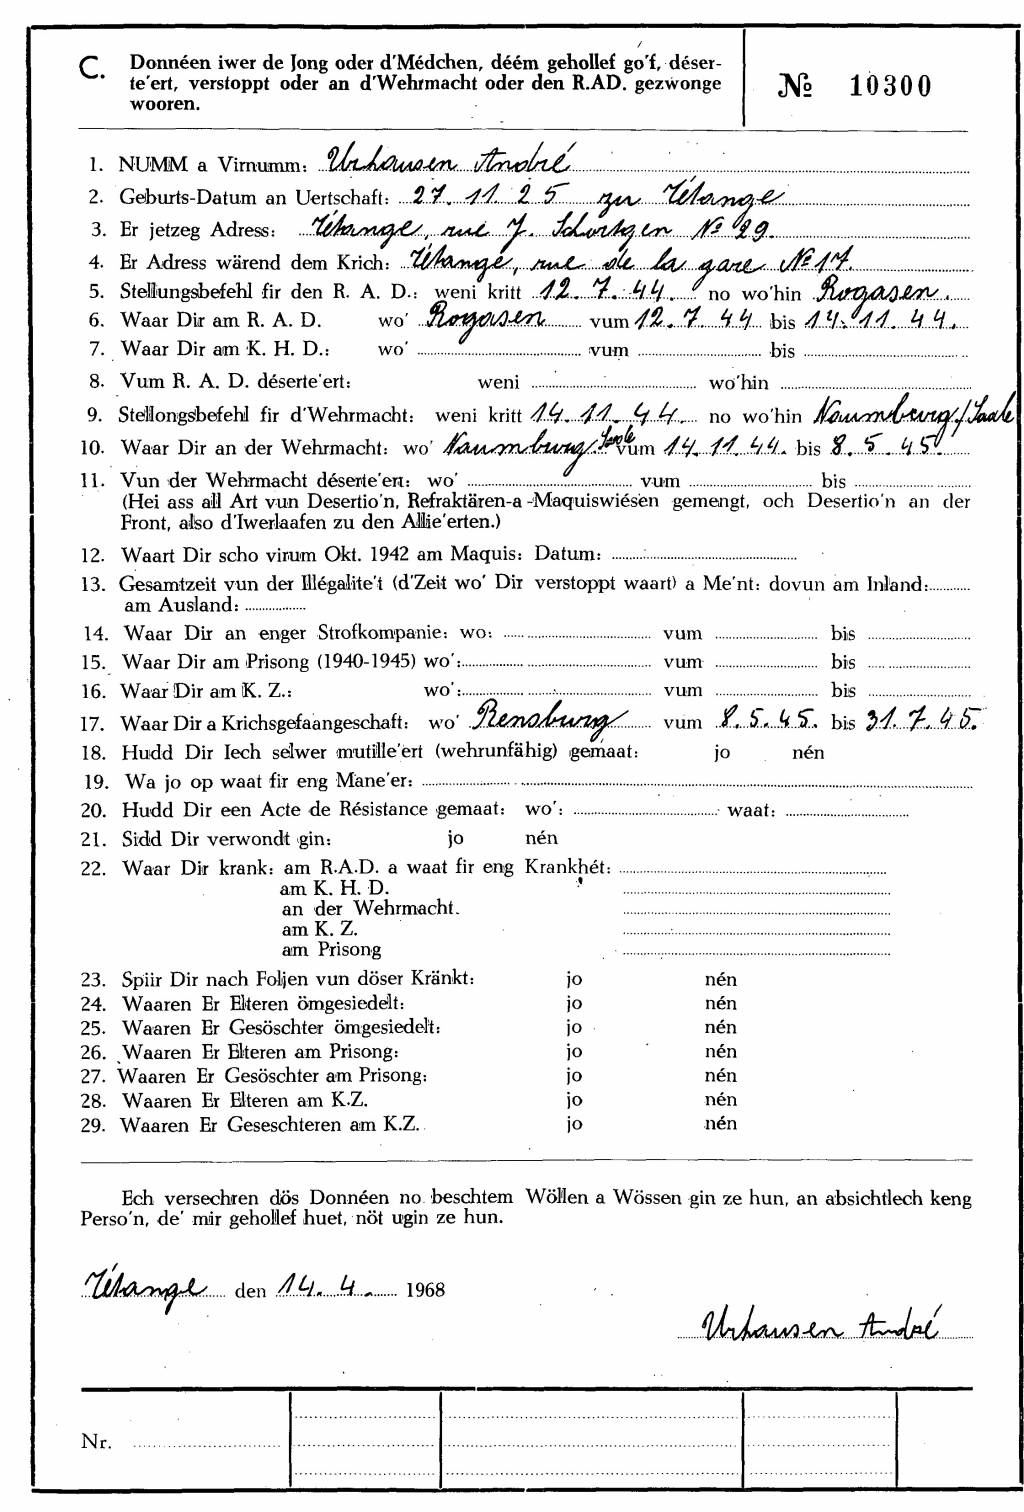 C. Donnéen iwer de Jong oder d'Médchen, déém gehollef go'f, déser-
te'ert, verstoppt oder an d'Wehrmacht oder den R.AD. gezwonge
wooren.
№ 10300
1. NUMM a Virnumm: Urhausen André
2. Geburts-Datum an Uertschaft: 27. 11. 25 zu Tétange
3. Er jetzeg Adress: Tétange, rue J. Schortgen № 29.
4. Er Adress wärend dem Krich: Tétange, rue de la gare № 17.
5. Stellungsbefehl fir den R. A. D.: weni kritt 12. 7. 44. no wo'hin Rogasen.
6. Waar Dir am R. A. D. wo' Rogasen vum 12. 7. 44 bis 14. 11. 44.
7. Waar Dir am K. H. D.: wo' vum bis
8. Vum R. A. D. déserte'ert: weni wo'hin
9. Stellongsbefehl fir d'Wehrmacht: weni kritt 14. 11. 44. no wo'hin Naumburg/Saale
10. Waar Dir an der Wehrmacht: wo' Naumburg/Saale vum 14. 11. 44. bis 8. 5. 45.
11. Vun der Wehrmacht déserte'ert: wo' vum bis
(Hei ass all Art vun Desertio'n, Refraktären-a -Maquiswiésen gemengt, och Desertio'n an der
Front, also d'Iwerlaafen zu den Allie'erten.)
12. Waart Dir scho virum Okt. 1942 am Maquis: Datum:
13. Gesamtzeit vun der Illégalite't (d'Zeit wo' Dir verstoppt waart) a Me'nt: dovun am Inland:
am Ausland:
14. Waar Dir an enger Strofkompanie: wo: vum bis
15. Waar Dir am Prisong (1940-1945) wo': vum bis
16. Waar Dir am K. Z.: wo': vum bis
17. Waar Dir a Krichsgefaangeschaft: wo' Rensburg vum 8. 5. 45. bis 31. 7. 45.
18. Hudd Dir Iech selwer mutille'ert (wehrunfähig) gemaat: jo nén
19. Wa jo op waat fir eng Mane'er:
20. Hudd Dir een Acte de Résistance gemaat: wo': waat:
21. Sidd Dir verwondt gin: jo nén
22. Waar Dir krank: am R.A.D. a waat fir eng Krankhét:
am K. H. D.
an der Wehrmacht.
am K. Z.
am Prisong
23. Spiir Dir nach Foljen vun döser Kränkt: jo nén
24. Waaren Er Elteren ömgesiedelt: jo nén
25. Waaren Er Gesöschter ömgesiedelt: jo nén
26. Waaren Er Elteren am Prisong: jo nén
27. Waaren Er Gesöschter am Prisong: jo nén
28. Waaren Er Elteren am K.Z. jo nén
29. Waaren Er Geseschteren am K.Z. jo nén
Ech versechren dös Donnéen no beschtem Wöllen a Wössen gin ze hun, an absichtlech keng
Perso'n, de' mir gehollef huet, nöt ugin ze hun.
Tétange den 14. 4. 1968
Urhausen André
Nr.